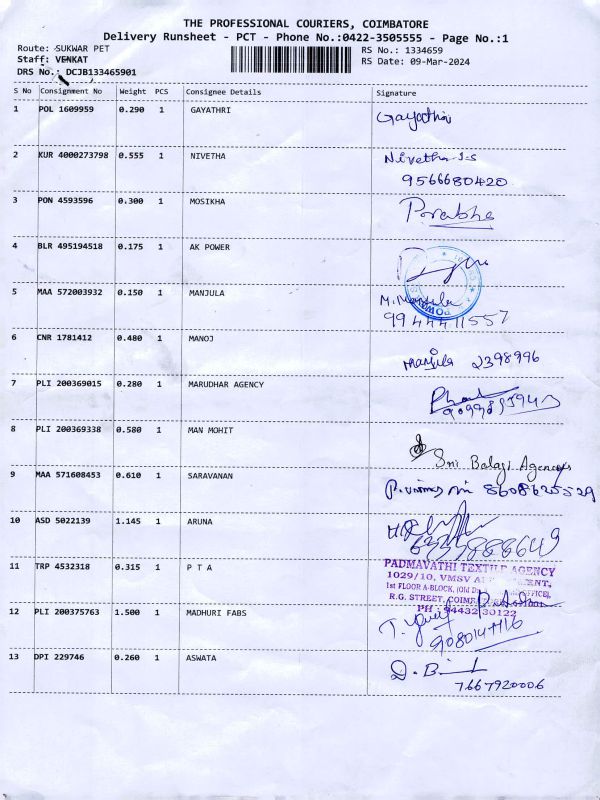 THE PROFESSIONAL COURIERS, COIMBATORE
Delivery Runsheet - PCT - Phone No.:0422-3505555 - Page No.:1
Route: SUKWAR PET
RS No.: 1334659
Staff: VENKAT
RS Date: 09-Mar-2024
DRS No.: DCJB133465901
S No Consignment No Weight PCS Consignee Details Signature
1 POL 1609959 0.290 1 GAYATHRI Gayathri
2 KUR 4000273798 0.555 1 NIVETHA Nivetha
9566680420
3 PON 4593596 0.300 1 MOSIKHA Prabha
4 BLR 495194518 0.175 1 AK POWER
5 MAA 572003932 0.150 1 MANJULA M. Manjula
9944411557
6 CNR 1781412 0.480 1 MANOJ Manjula 2398996
7 PLI 200369015 0.280 1 MARUDHAR AGENCY
8 PLI 200369338 0.580 1 MAN MOHIT
Sri Balaji Agencys
9 MAA 571608453 0.610 1 SARAVANAN 8608620529
10 ASD 5022139 1.145 1 ARUNA
11 TRP 4532318 0.315 1 P T A PADMAVATHI TEXTILE AGENCY
1029/10, VMSV
1st FLOOR A-BLOCK, OFFICE),
R.G. STREET,
PH : 94432 30122
12 PLI 200375763 1.500 1 MADHURI FABS
13 DPI 229746 0.260 1 ASWATA
7667920006